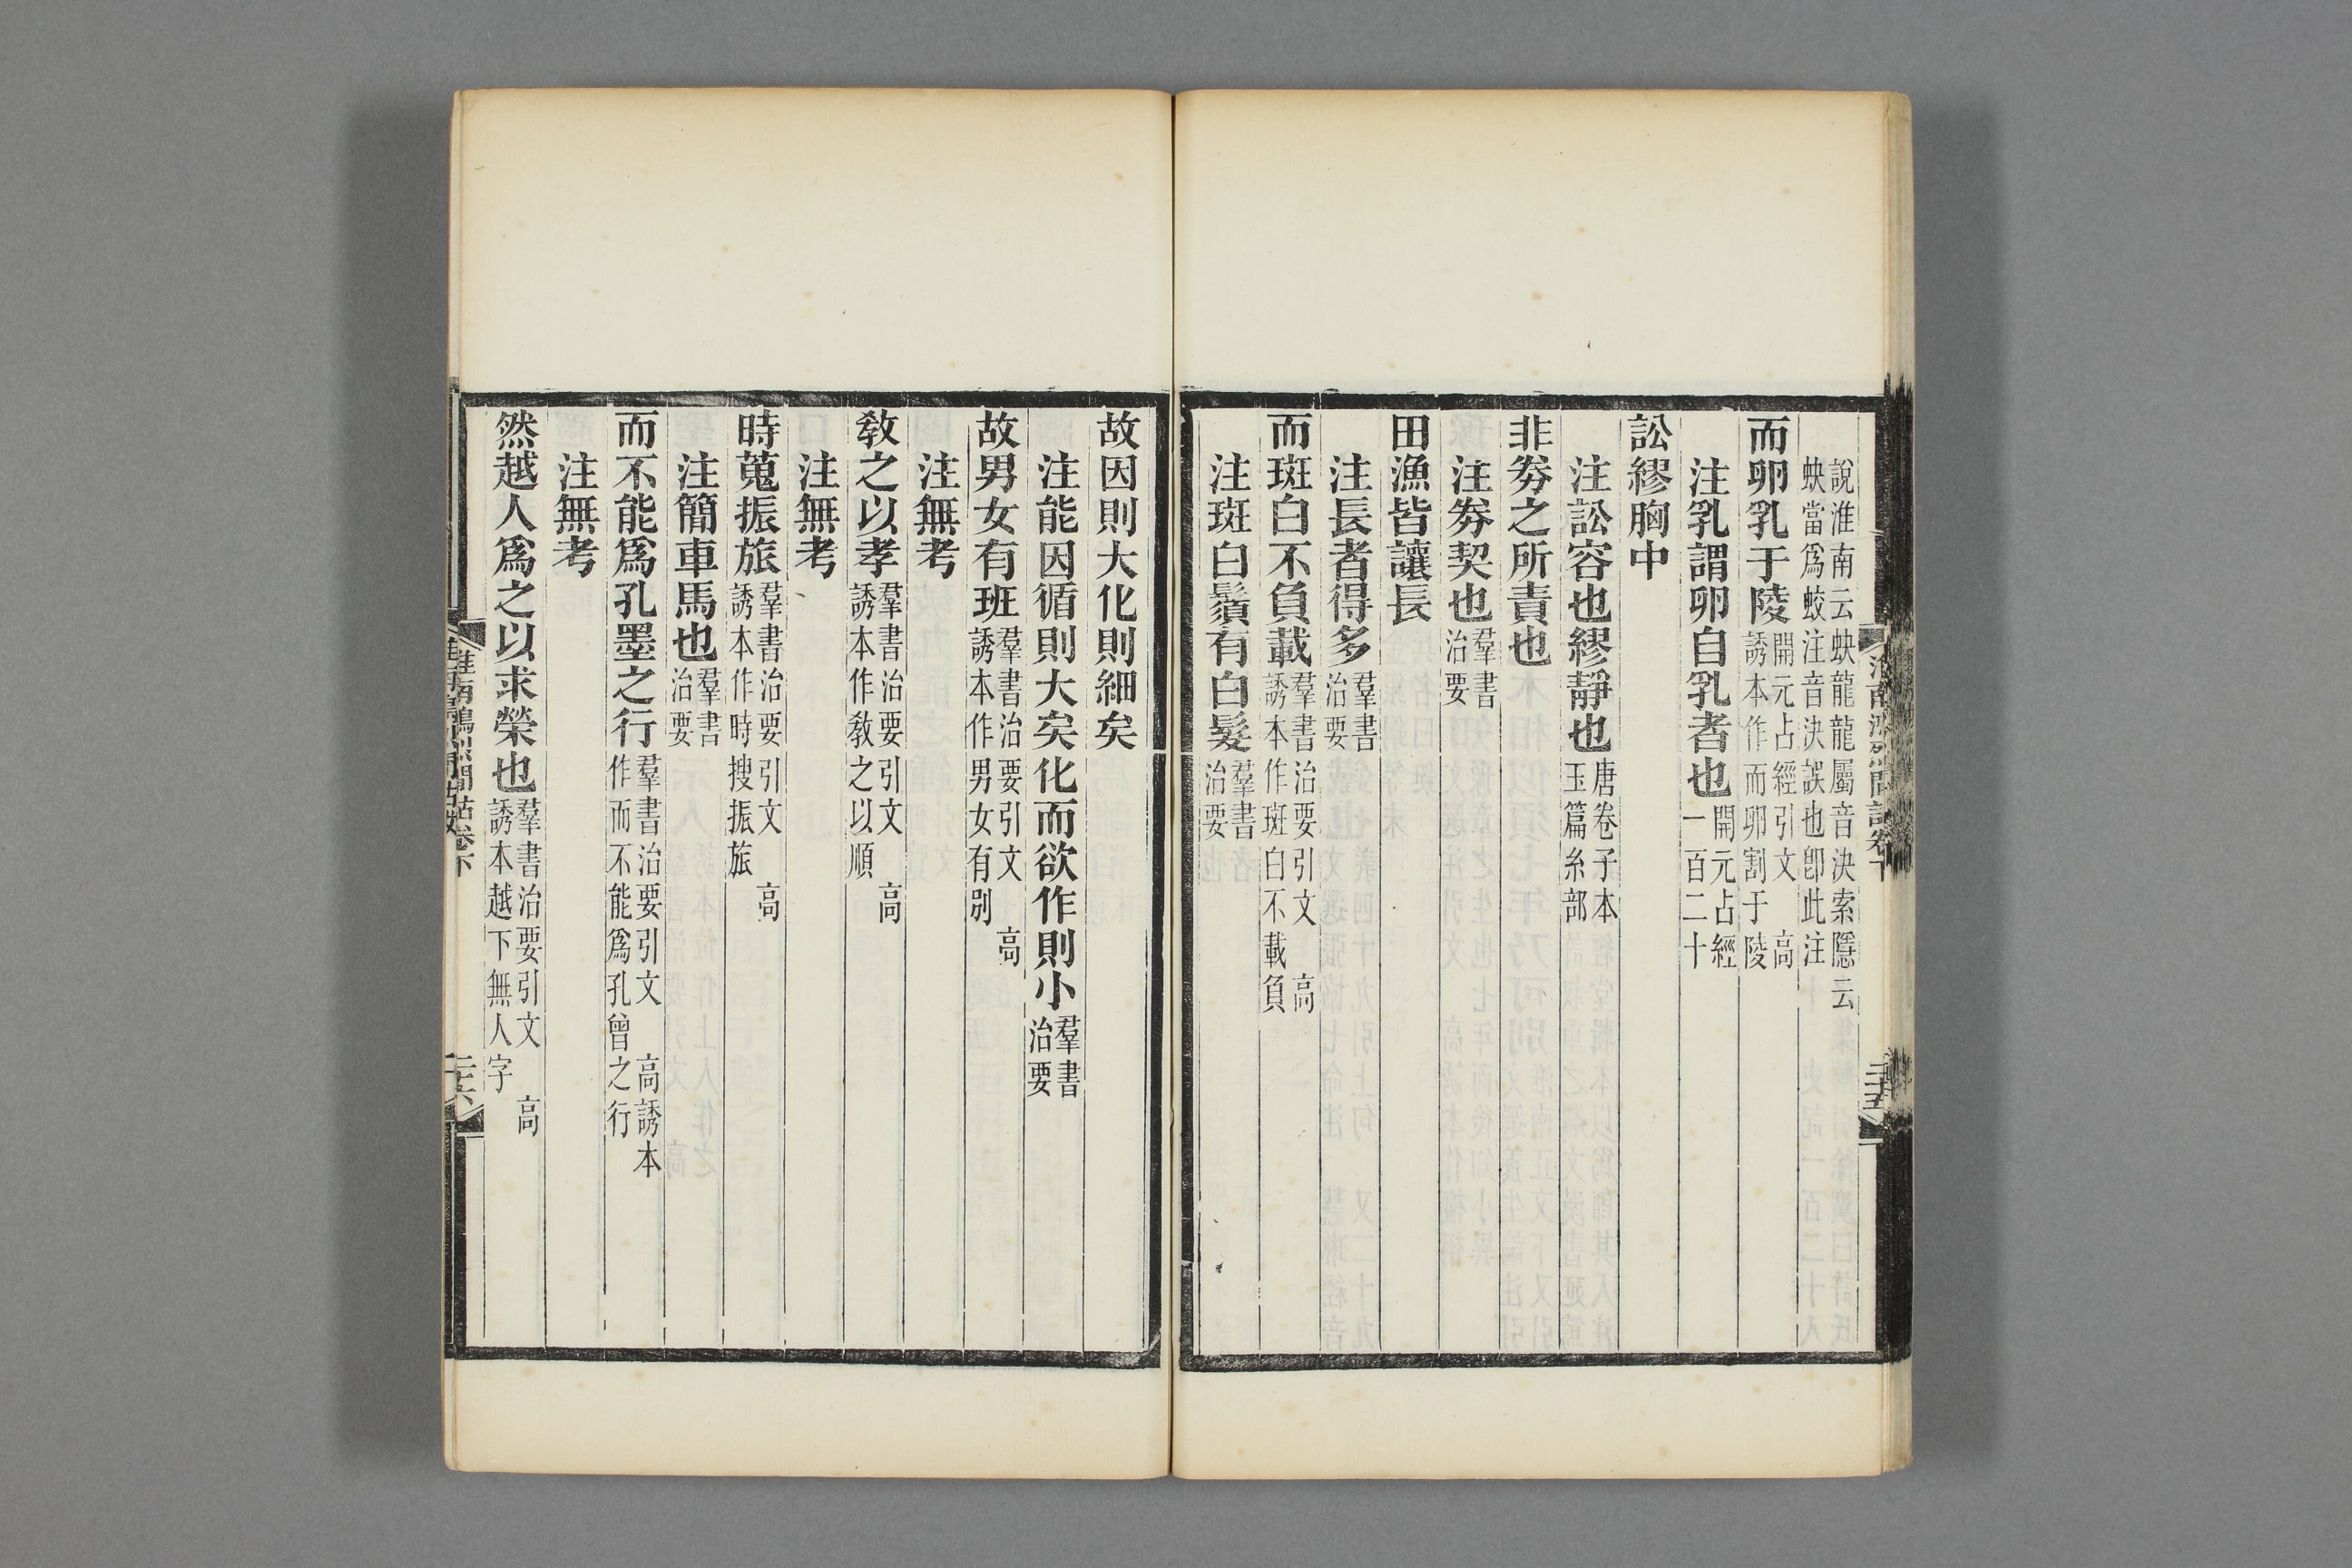 說淮南云蚗龍龍屬音決索隱云
蚗當爲蛟注音決誤也卽此注
而卵乳于陵開元占經引文　高
誘本作而卵割于陵
注乳謂卵自乳者也開元占經
一百二十
訟繆胸中
注訟容也繆靜也唐卷子本
玉篇糸部
非劵之所責也
注劵契也羣書
治要
田漁皆讓長
注長者得多羣書
治要
而斑白不負載羣書治要引文　高
誘本作斑白不載負
注斑白鬚有白髮羣書
治要
故因則大化則細矣
注能因循則大矣化而欲作則小羣書
治要
故男女有班羣書治要引文　高
誘本作男女有別
注無考
敎之以孝羣書治要引文　高
誘本作敎之以順
注無考
時蒐振旅羣書治要引文　高
誘本作時搜振旅
注簡車馬也羣書
治要
而不能爲孔墨之行羣書治要引文　高誘本
作而不能爲孔曾之行
注無考
然越人爲之以求榮也羣書治要引文　高
誘本越下無人字
淮南鴻烈閒詁卷下
二十六